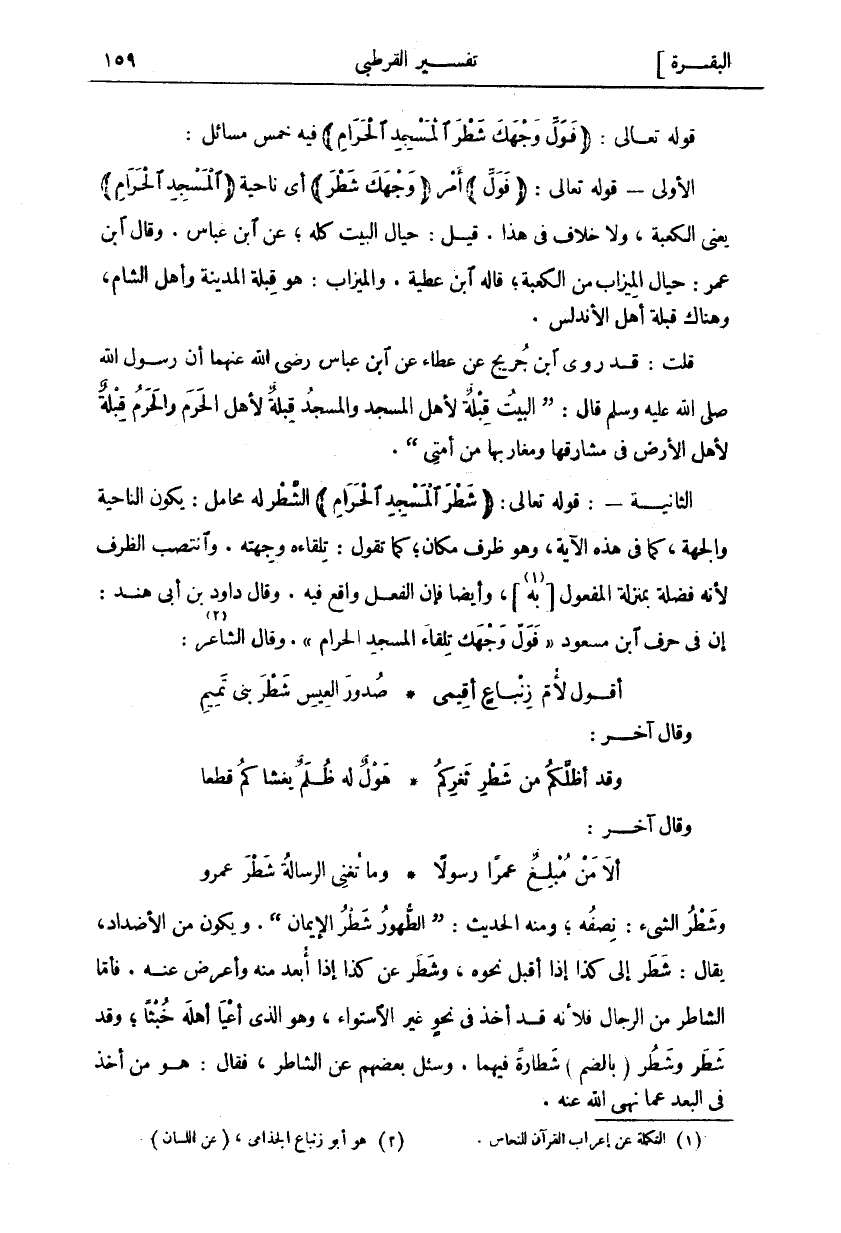 البقـــرة ] تفســـير القرطبي ١٥٩
قوله تعــالى : ﴿ فَوَلِّ وَجْهَكَ شَطْرَ ٱلْمَسْجِدِ ٱلْحَرَامِ ﴾ فيه خمس مسائل :
الأولى — قوله تعالى : ﴿ فَوَلِّ ﴾ أَمْر ﴿ وَجْهَكَ شَطْرَ ﴾ أى ناحية ﴿ ٱلْمَسْجِدِ ٱلْحَرَامِ ﴾
يعنى الكعبة ، ولا خلاف فى هذا . قيــل : حيال البيت كله ؛ عن ٱبن عباس . وقال ٱبن
عمر : حيال المِيزاب من الكعبة ؛ قاله ٱبن عطية . والميزاب : هو قبلة المدينة وأهل الشام،
وهناك قبلة أهل الأندلس .
قلت : قــد روى ٱبن جُريج عن عطاء عن ٱبن عباس رضى الله عنهما أن رسول الله
صلى الله عليه وسلم قال : " البيتُ قِبْلةٌ لأهل المسجد والمسجدُ قِبلةٌ لأهل الحَرَم والحَرَمُ قِبْلةٌ
لأهل الأرض فى مشارقها ومغاربها من أمتى " .
الثانيــــة — : قوله تعالى : ﴿ شَطْرَ ٱلْمَسْجِدِ ٱلْحَرَامِ ﴾ الشَّطْر له محامل : يكون الناحية
والجهة ، كما فى هذه الآية ، وهو ظرف مكان؛ كما تقول : تِلقاءه وجِهته . وٱنتصب الظرف
لأنه فضلة بمنزلة المفعول [ به ](١) ، وأيضا فإن الفعــل واقع فيه . وقال داود بن أبى هنــد :
إن فى حرف ٱبن مسعود « فَوَلِّ وَجْهَك تِلقاءَ المسجد الحرام » . وقال الشاعر(٢) :
أقــول لأُمّ زِنْبــاعٍ أقِيمى * صُدورَ العِيس شَطْرَ بنى تَمِيمِ
وقال آخـــر :
وقد أظلَّكُمُ من شَطْرِ ثَغرِكمُ * هَوْلٌ له ظُــلَمٌ يغشاكمُ قطعا
وقال آخـــر :
ألَا مَنْ مُبْلِـغٌ عمرًا رسولًا * وما تُغنِى الرسالةُ شَطْرَ عمرو
وشَطْرُ الشىء : نِصفُه ؛ ومنه الحديث : " الطُّهورُ شَطْرُ الإيمان " . ويكون من الأضداد،
يقال : شَطَر إلى كذا إذا أقبل نحوه ، وشَطَر عن كذا إذا أُبعد منه وأعرض عنــه . فأمّا
الشاطر من الرجال فلأنه قــد أخذ فى نحوٍ غير الٱستواء ، وهو الذى أعْيَا أهلَه خُبْثًا ؛ وقد
شَطَر وشَطُر ( بالضم ) شَطارةً فيهما . وسئل بعضهم عن الشاطر ، فقال : هــو من أخذ
فى البعد عما نهى الله عنه .
(١) التكملة عن إعراب القرآن للنحاس . (٢) هو أبو زنباع الجذامى ، ( عن اللسان )